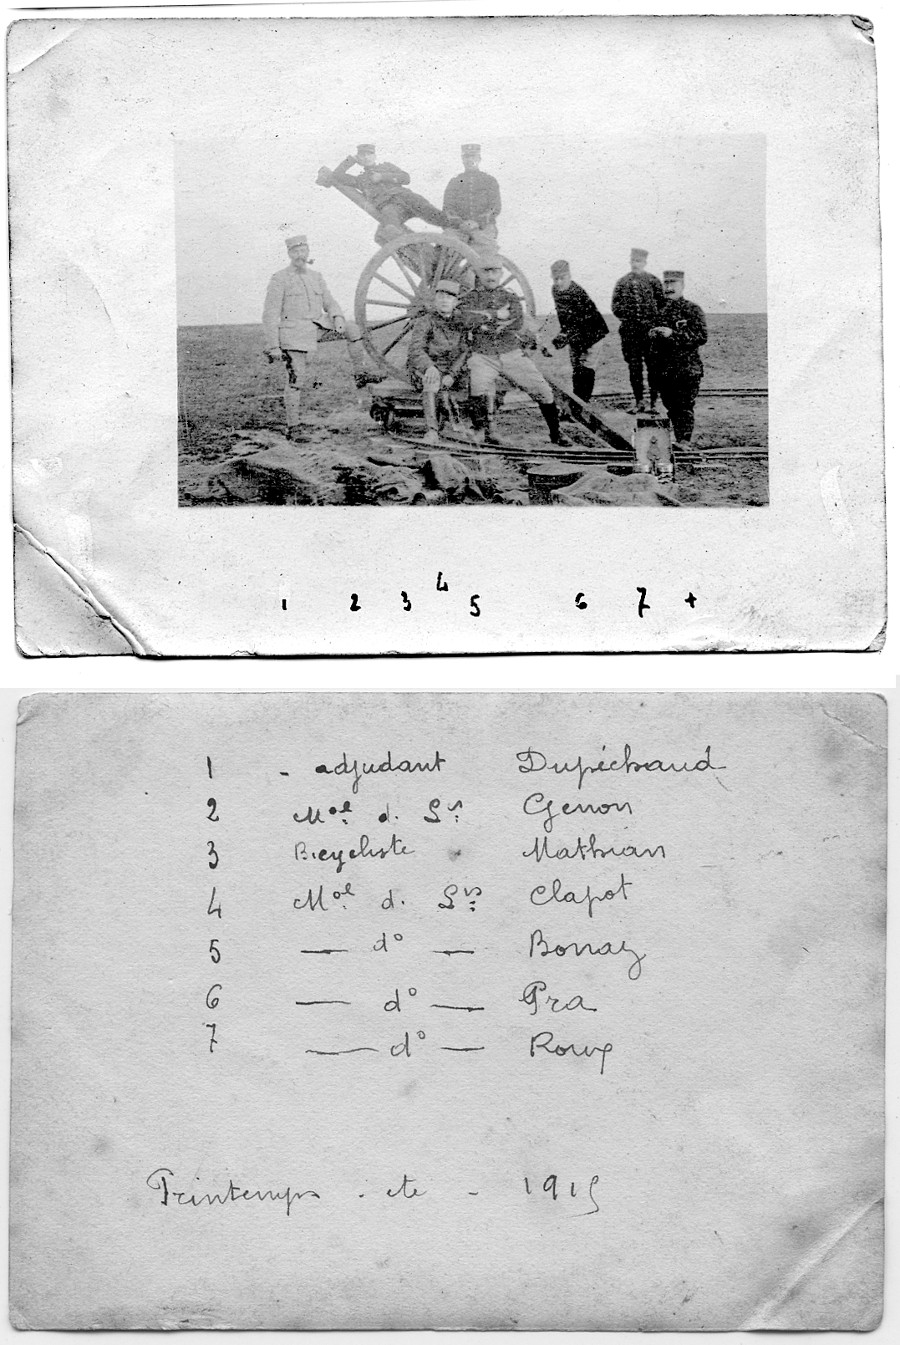 1 2 3 4 5 6 7 +
1 - adjudant Dupéchaud
2 Mal. d. Lis: Genon
3 Bicycliste Mathian
4 Mal. d. Lis: Clapot
5 — d° — Bonnaz
6 — d° — Pra
7 — d° — Roux
Printemps - ete - 1915